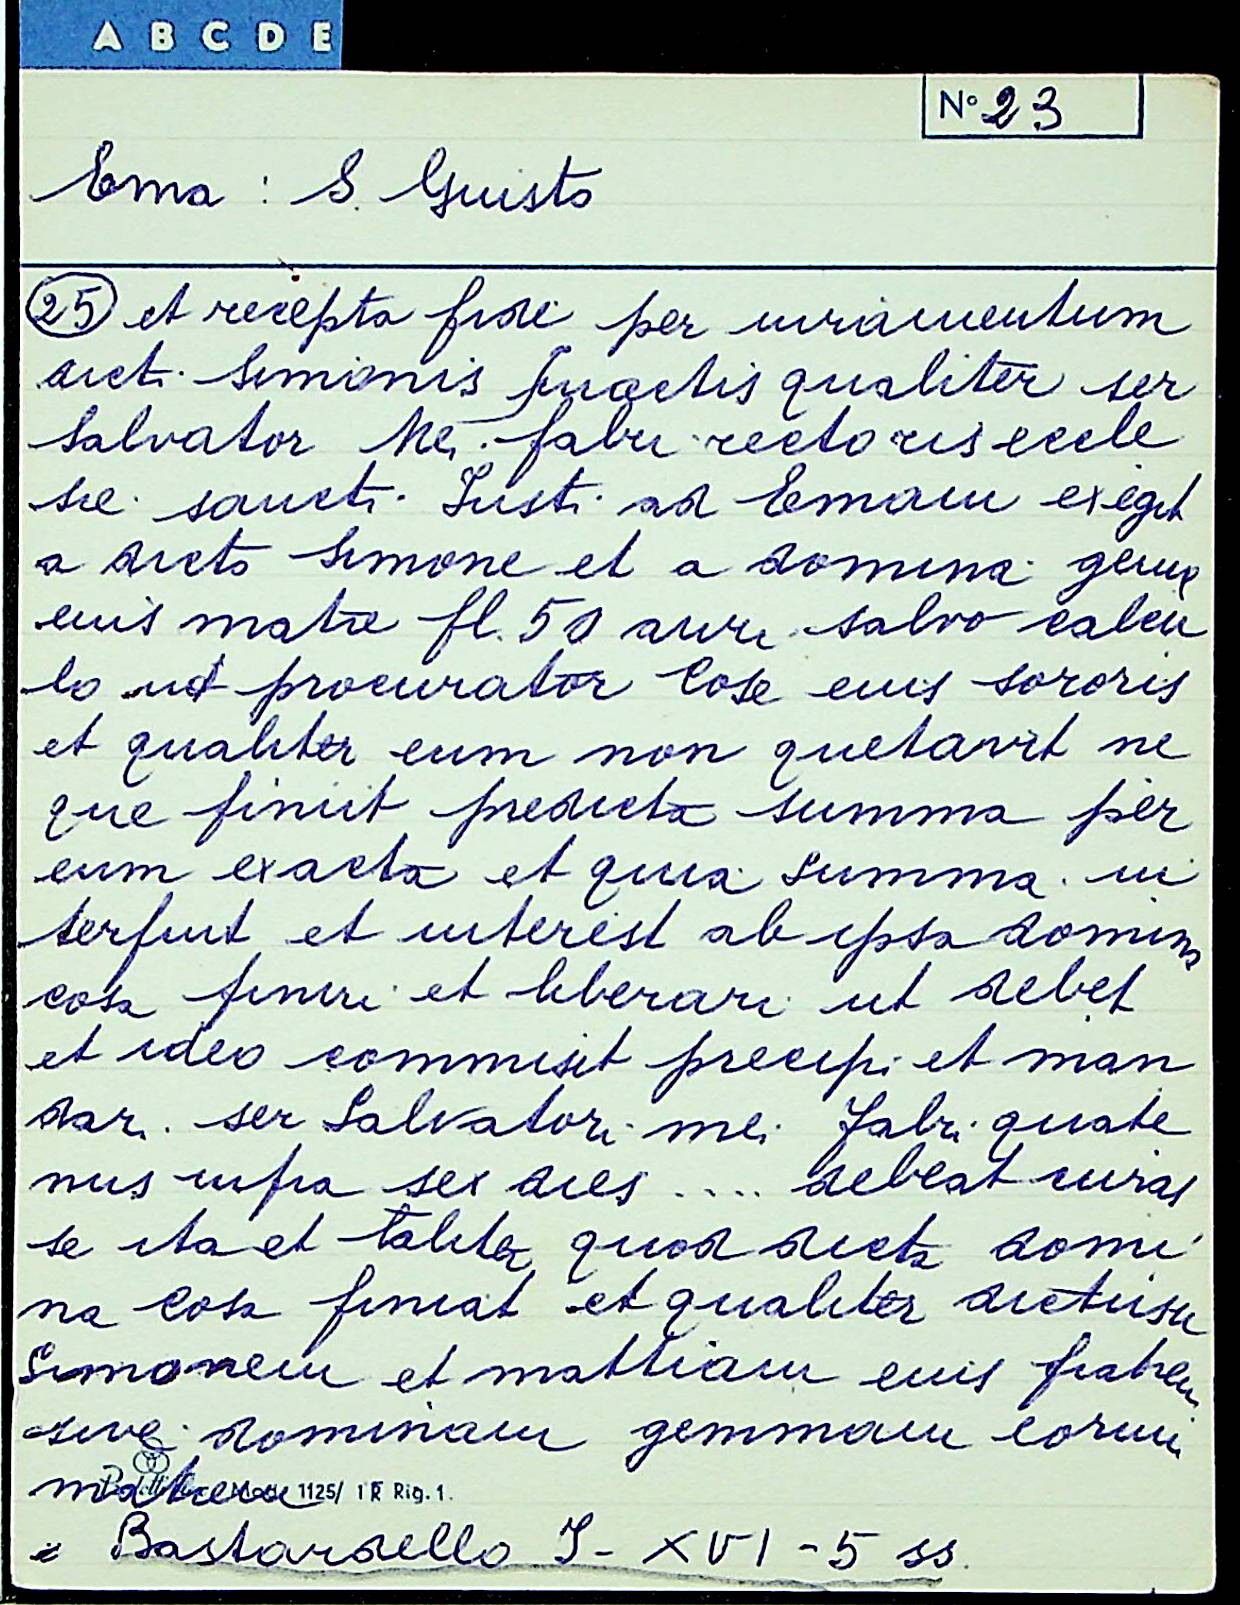 A B C D E
N° 23
Ema : S. Giusto
25 et recepta fide per iuramentum
dicti Simonis qualiter ser
Salvator Mei fabri rectoris eccle
sie sancti Iusti ad Emam exegit
a dicto Simone et a domina gema
eius matre fl. 50 auri salvo calcu
lo ut procurator Cose eius sororis
et qualiter eum non quetavit ne
que finiit predicta summa per
eum exacta et quia summa in
terfuit et interest ab ipsa domina
cosa finiri et liberari ut debet
et ideo commisit precipi et man
dari ser Salvatori mei Fabri quate
nus infra sex dies .... debeat
se ita et taliter quod dicta domi
na Cosa finiat et qualiter dictus
Simonem et mattiam eius fratrem
sive dominam gemmam eorum
matrem Mod. 1125/ 1 R Rig. 1.
Bastardello I - XVI - 5 ss.